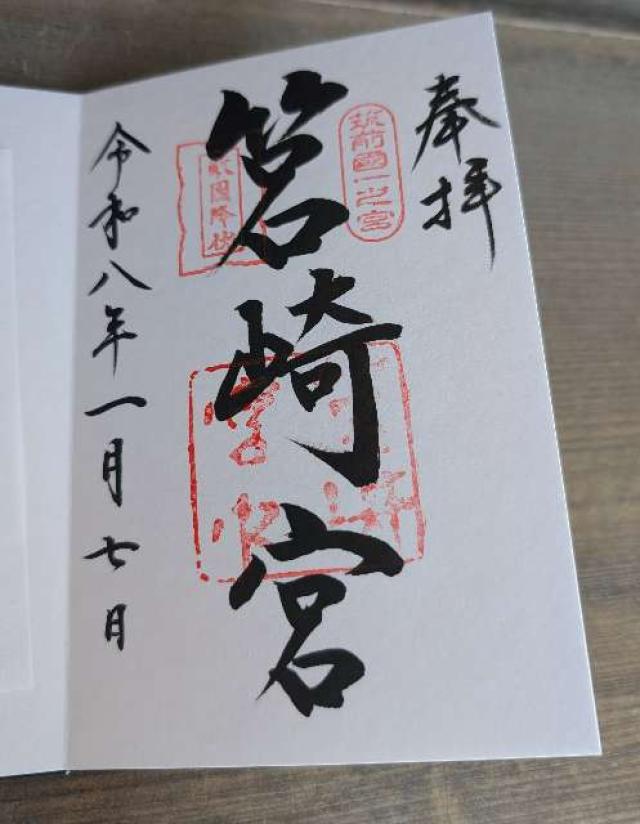 奉拝
筑前國一之宮
筥崎宮
敵国降伏
令和八年一月七日